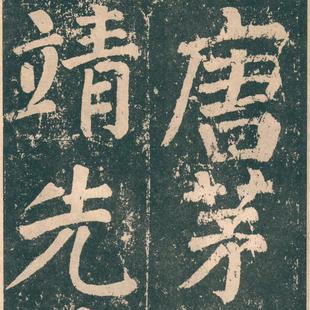 唐茅
靖先